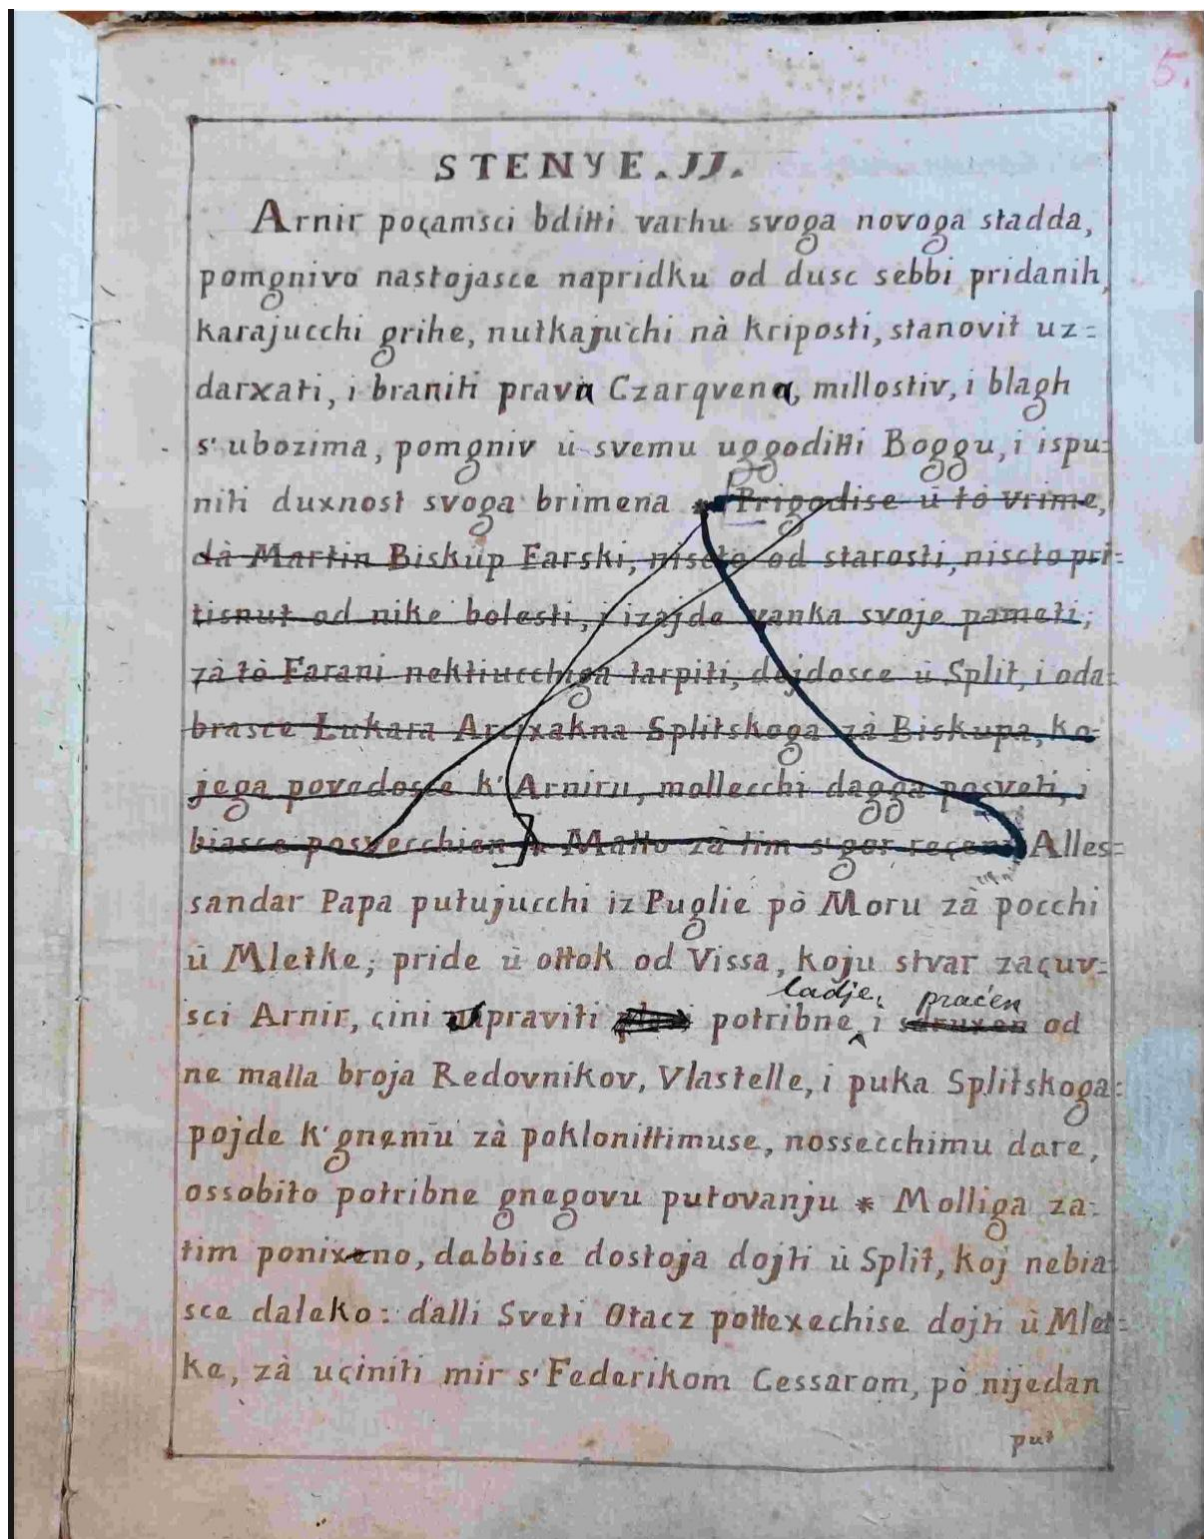 5.
STENYE. II.
Arnir poçamsci bditti varhu svoga novoga stadda,
pomgnivo nastojasce napridku od dusc sebbi pridanih,
karajucchi grihe, nutkajuchi nà kriposti, stanovit uz=
darxati, i braniti prava Czarqvena, millostiv, i blagh
s' ubozima, pomgniv ù svemu uggoditti Boggu, i ispu=
niti duxnost svoga brimena * [Prigodise ù tò vrime,
dà Martin Biskup Farski, niscto od starosti, niscto pri=
tisnut od nike bolesti, i izajde vanka svoje pameti;
zà tò Farani nektiucchiga tarpiti, dojdosce ù Split, i oda=
brasce Lukara Arcixakna Splitskoga zà Biskupa, ko=
jega povedosce k' Arniru, mollecchi dagga posveti, i
biasce posvecchien] * Mallo zà tim s' gor reçeni Alles=
sandar Papa putujucchi iz Puglie pò Moru zà pocchi
ù Mletke; pride ù ottok od Vissa, koju stvar zaçuv=
ladje, praćen
sci Arnir, çini pripraviti potribne, i sdruxen od
ne malla broja Redovnikov, Vlastelle, i puka Splitskoga=
pojde k' gnemu zà poklonittimuse, nossecchimu dare,
ossobito potribne gnegovu putovanju * Molliga za=
tim ponixeno, dabbise dostoja dojti ù Split, koj nebia=
sce daleko: dalli Sveti Otacz pottexechise dojti ù Mlet=
ke, zà uçiniti mir s' Federikom Cessarom, pò nijedan
put